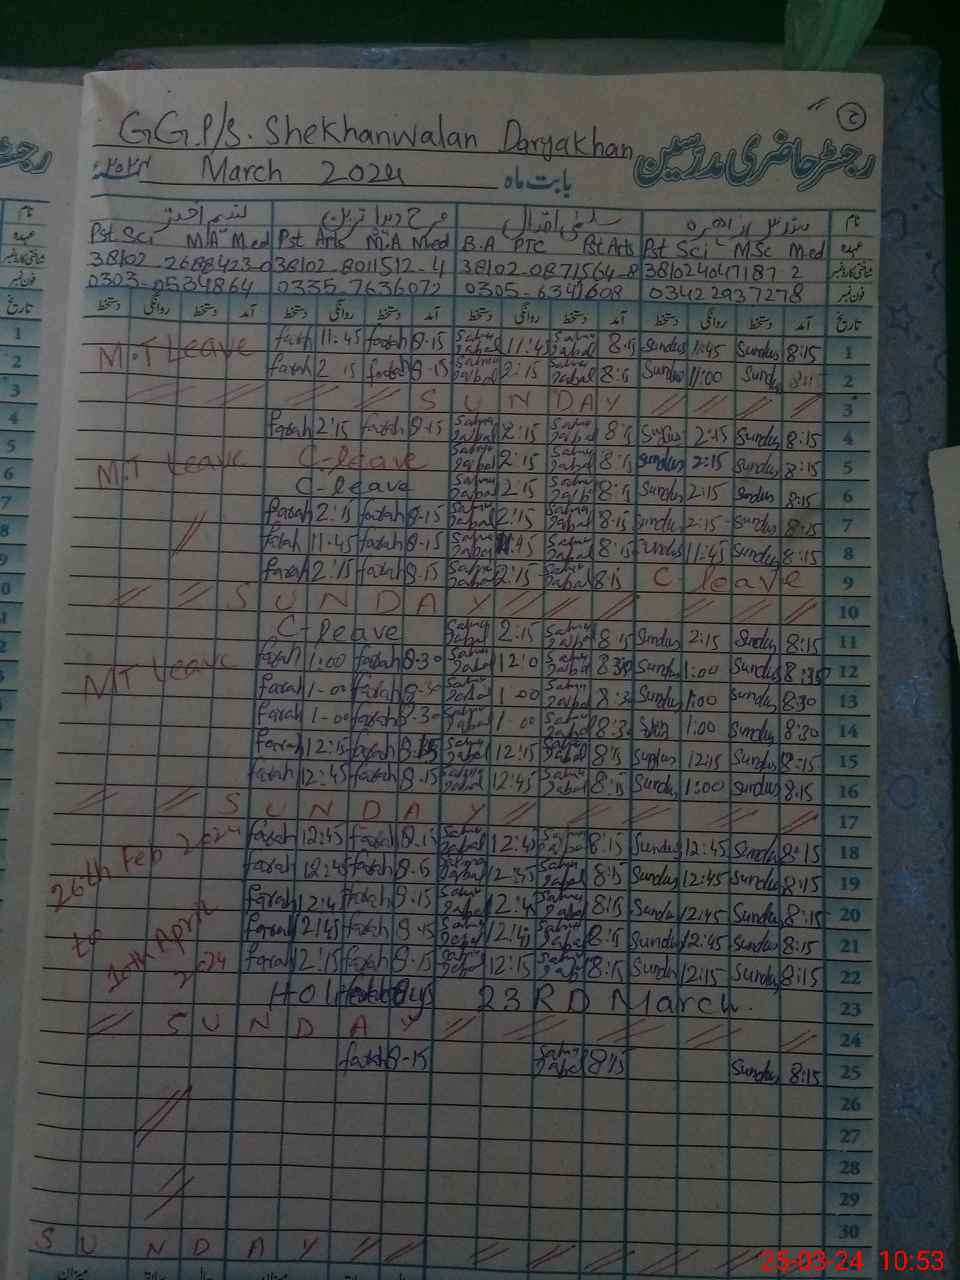 GG.P/S. Shekhanwalan Daryakhan
رجسٹر حاضری مدرسین
March 2024 بابت ماہ
نام
Pst Sci M.A M.ed Pst Arts M.A M.ed B.A PTC Pst Arts Pst Sci M.Sc M.ed عہدہ
38102-2688423-0 38102-8011512-4 38102-0871564-8 3810240471872 شناختی کارڈ نمبر
0303-0534864 0335-7636072 0305-6341608 03422937278 فون نمبر
دستخط روانگی دستخط آمد دستخط روانگی دستخط آمد دستخط روانگی دستخط آمد دستخط روانگی دستخط آمد تاریخ
M.T Leave farah 11:45 farah 8-15 Salma Iqbal 11:45 Salma Iqbal 8:15 Sundus 11:45 Sundus 8:15 1
farah 2:15 farah 8-15 Salma Iqbal 2:15 Salma Iqbal 8:15 Sundus 11:00 Sundus 8:15 2
SUNDAY 3
farah 2:15 farah 8-15 Salma Iqbal 2:15 Salma Iqbal 8:15 Sundus 2:15 Sundus 8:15 4
M.T Leave C-leave Salma Iqbal 2:15 Salma Iqbal 8:15 Sundus 2:15 Sundus 8:15 5
C-leave Salma Iqbal 2:15 Salma Iqbal 8:15 Sundus 2:15 Sundus 8:15 6
farah 2:15 farah 8-15 Salma Iqbal 2:15 Salma Iqbal 8:15 Sundus 2:15 Sundus 8:15 7
farah 11:45 farah 8-15 Salma Iqbal 11:45 Salma Iqbal 8:15 Sundus 11:45 Sundus 8:15 8
farah 2:15 farah 8-15 Salma Iqbal 2:15 Salma Iqbal 8:15 C-leave 9
SUNDAY 10
C-leave Salma Iqbal 2:15 Salma Iqbal 8:15 Sundus 2:15 Sundus 8:15 11
MT Leave farah 1:00 farah 8-30 Salma Iqbal 12:0 Salma Iqbal 8:30 Sundus 1:00 Sundus 8:30 12
farah 1-00 farah 8-30 Salma Iqbal 1:00 Salma Iqbal 8:30 Sundus 1:00 Sundus 8:30 13
farah 1-00 farah 8-30 Salma Iqbal 1:00 Salma Iqbal 8:30 Sundus 1:00 Sundus 8:30 14
farah 12:15 farah 8-15 Salma Iqbal 12:15 Salma Iqbal 8:15 Sundus 12:15 Sundus 8:15 15
farah 12:45 farah 8-15 Salma Iqbal 12:45 Salma Iqbal 8:15 Sundus 1:00 Sundus 8:15 16
SUNDAY 17
26th Feb 2024 farah 12:45 farah 8-15 Salma Iqbal 12:45 Salma Iqbal 8:15 Sundus 12:45 Sundus 8:15 18
farah 12:45 farah 8-15 Salma Iqbal Salma Iqbal 8:15 Sundus 12:45 Sundus 8:15 19
to farah 12:4 farah 8-15 Salma Iqbal 12:4 Salma Iqbal 8:15 Sundus 12:45 Sundus 8:15 20
10th April farah 12:45 farah 8-15 Salma Iqbal 12:45 Salma Iqbal 8:15 Sundus 12:45 Sundus 8:15 21
2024 farah 12:15 farah 8-15 Salma Iqbal 12:15 Salma Iqbal 8:15 Sundus 12:15 Sundus 8:15 22
23RD March. 23
SUNDAY 24
farah 8-15 Salma Iqbal 8:15 Sundus 8:15 25
26
27
28
29
30
SUNDAY
25-03-24 10:53